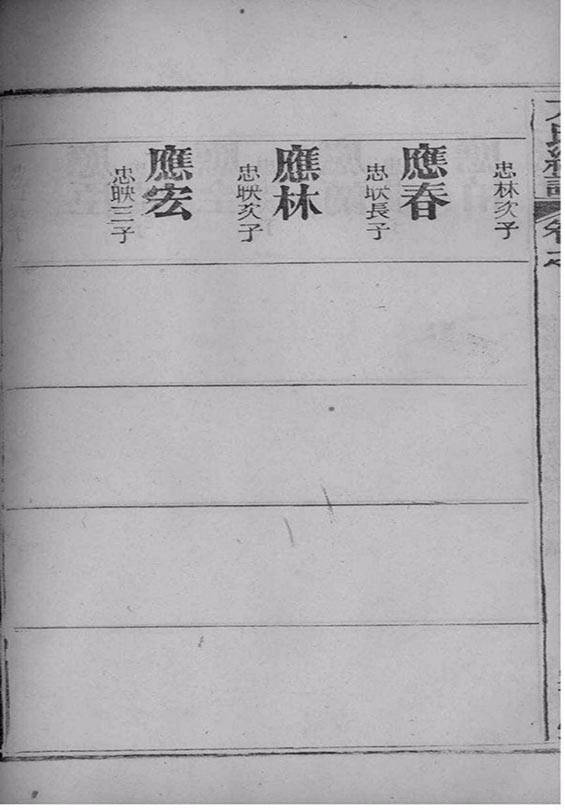 忠林次子
應春
忠映長子
應林
忠映次子
應宏
忠映三子